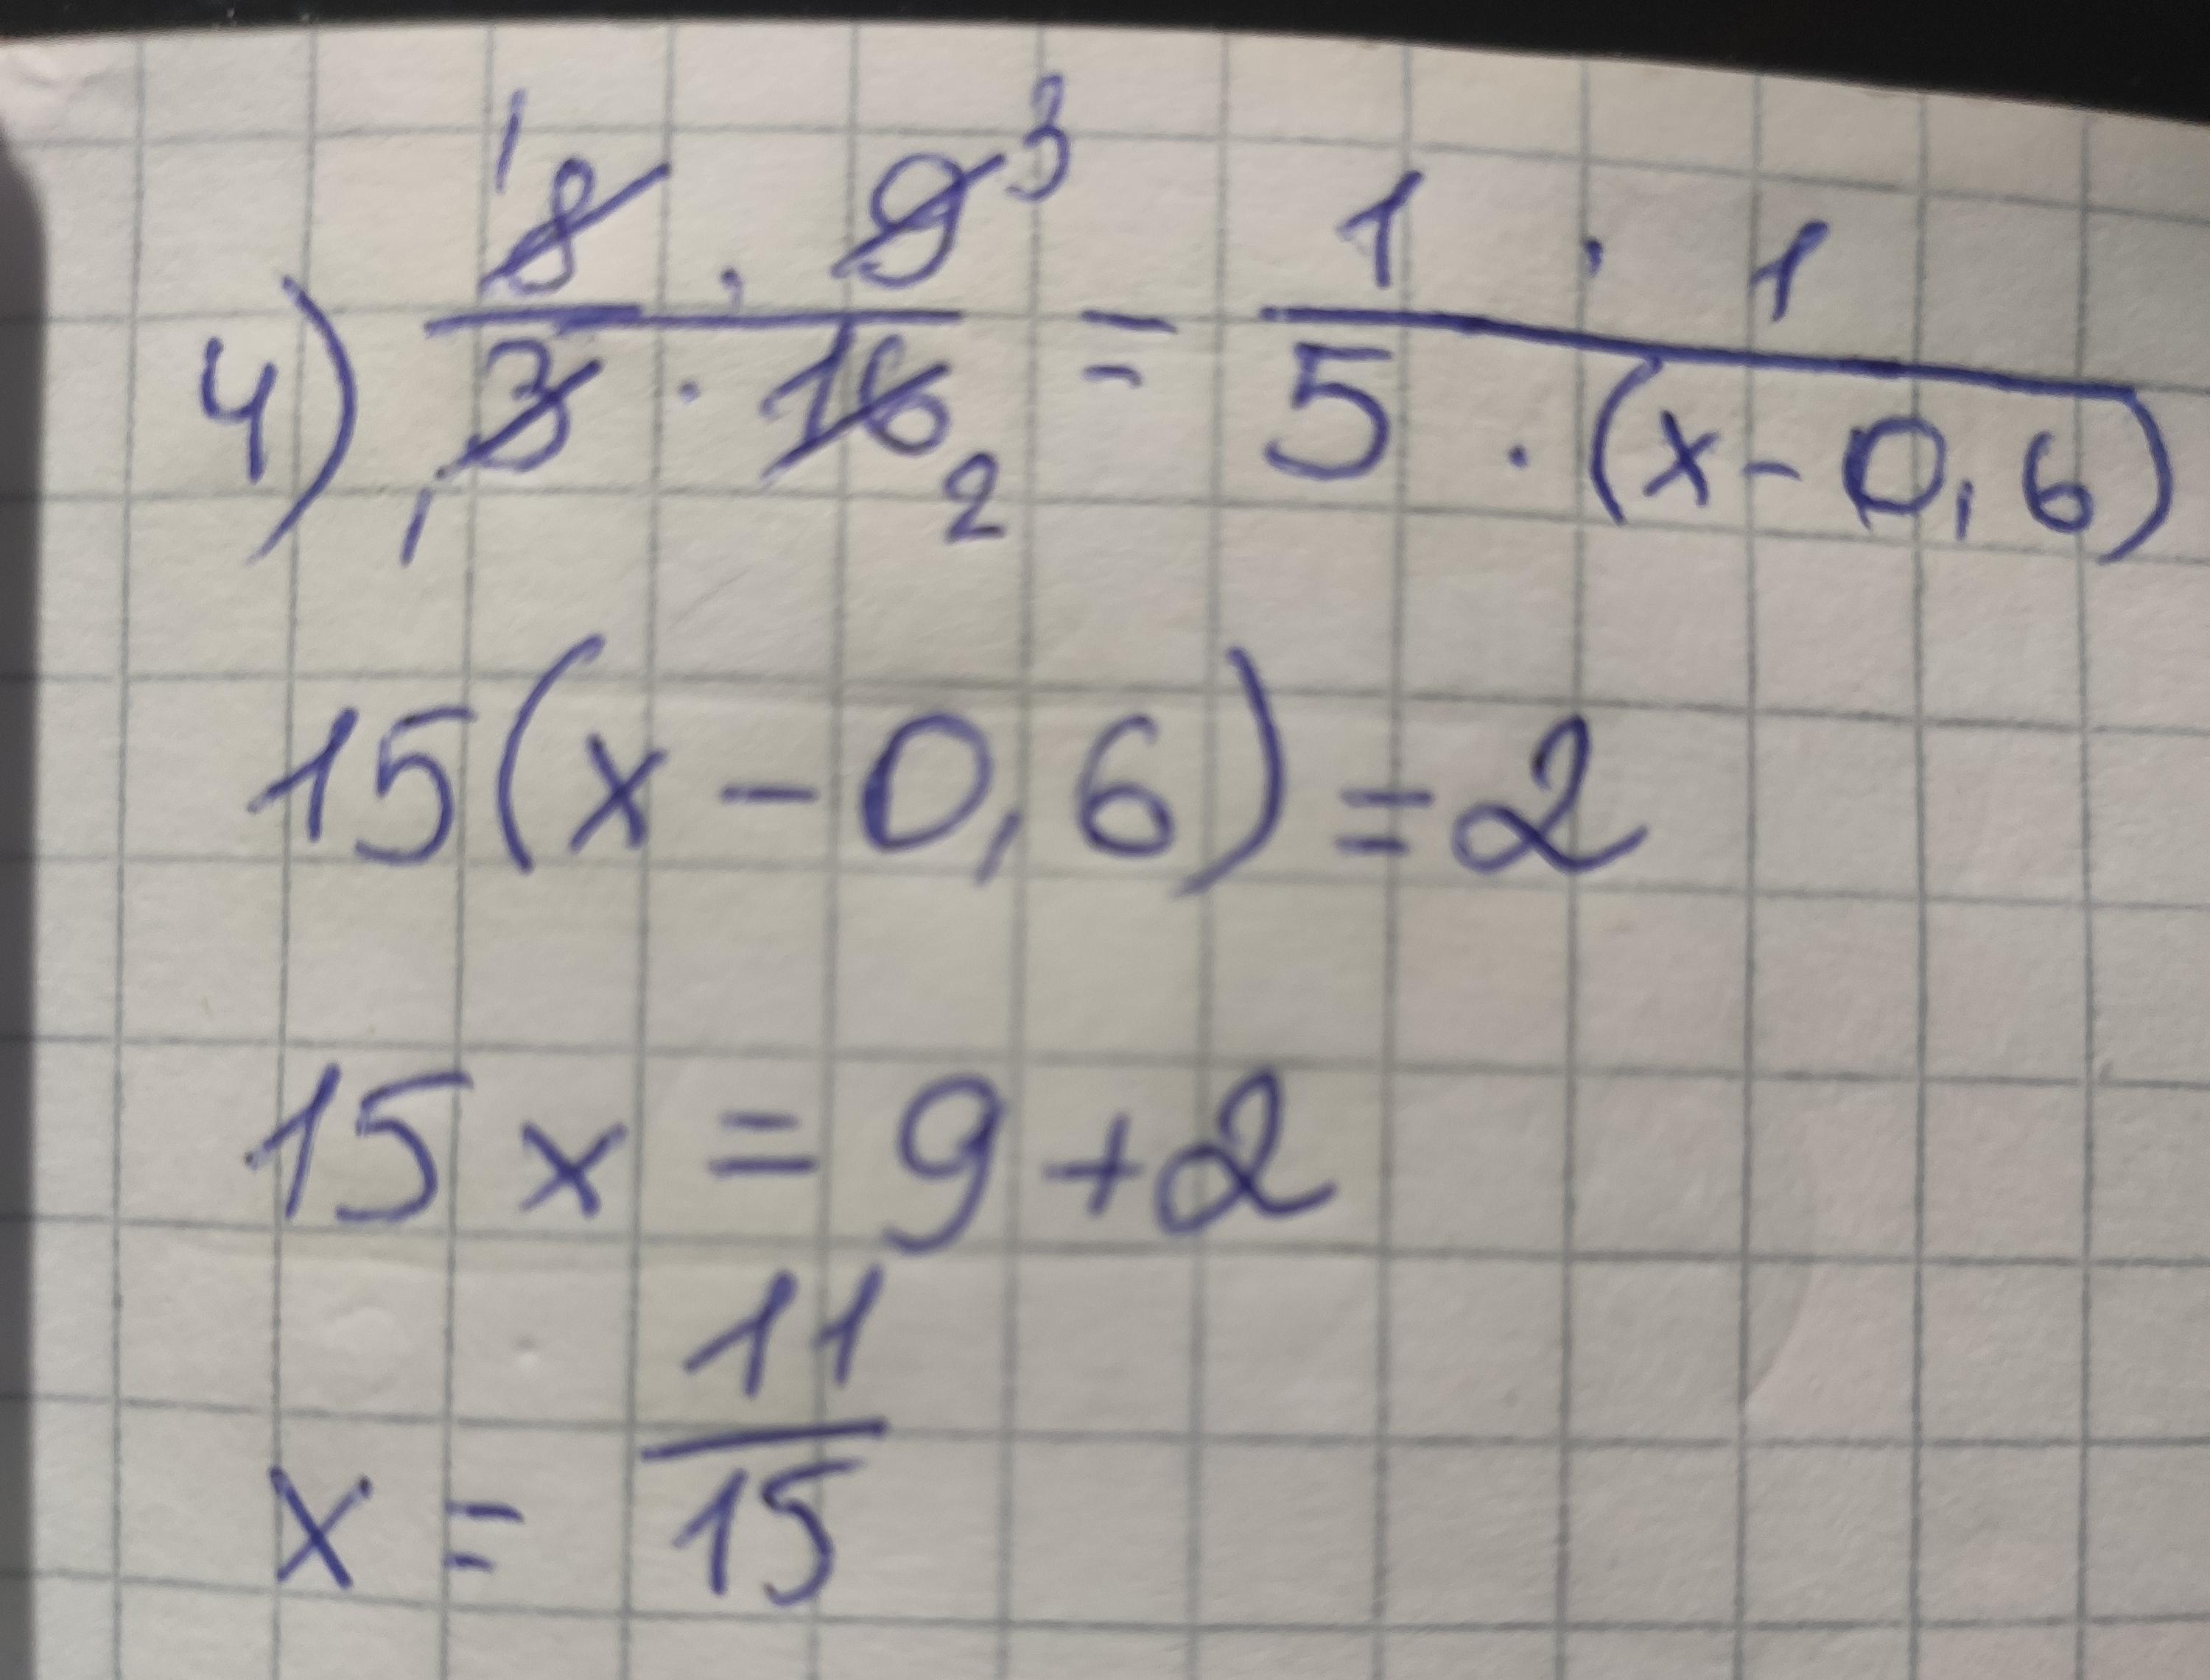 4) 1 8 · 9 3 / 1 3 · 16 2 = 1 · 1 / 5 · (x - 0,6)
15(x - 0,6) = 2
15x = 9 + 2
x = 11/15